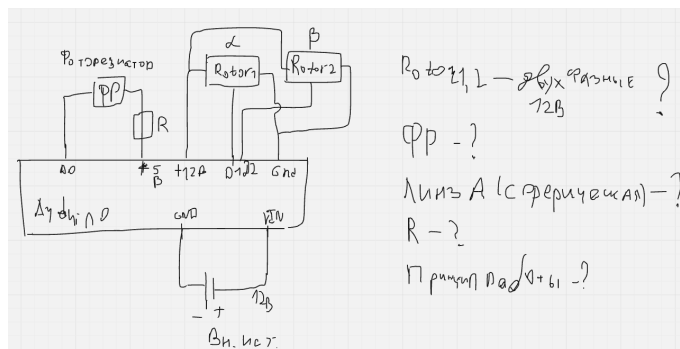 α
β
Фоторезистор
Rotor1
Rotor2
ФР
R
A0
+5
В
+12В
D1
D2
Gnd
Arduino
GND
VIN
12В
- +
Вн. ист.
Rotor1,2 — двухфазные ?
12В
ФР - ?
Линза (сферическая) - ?
R - ?
Принцип работы - ?